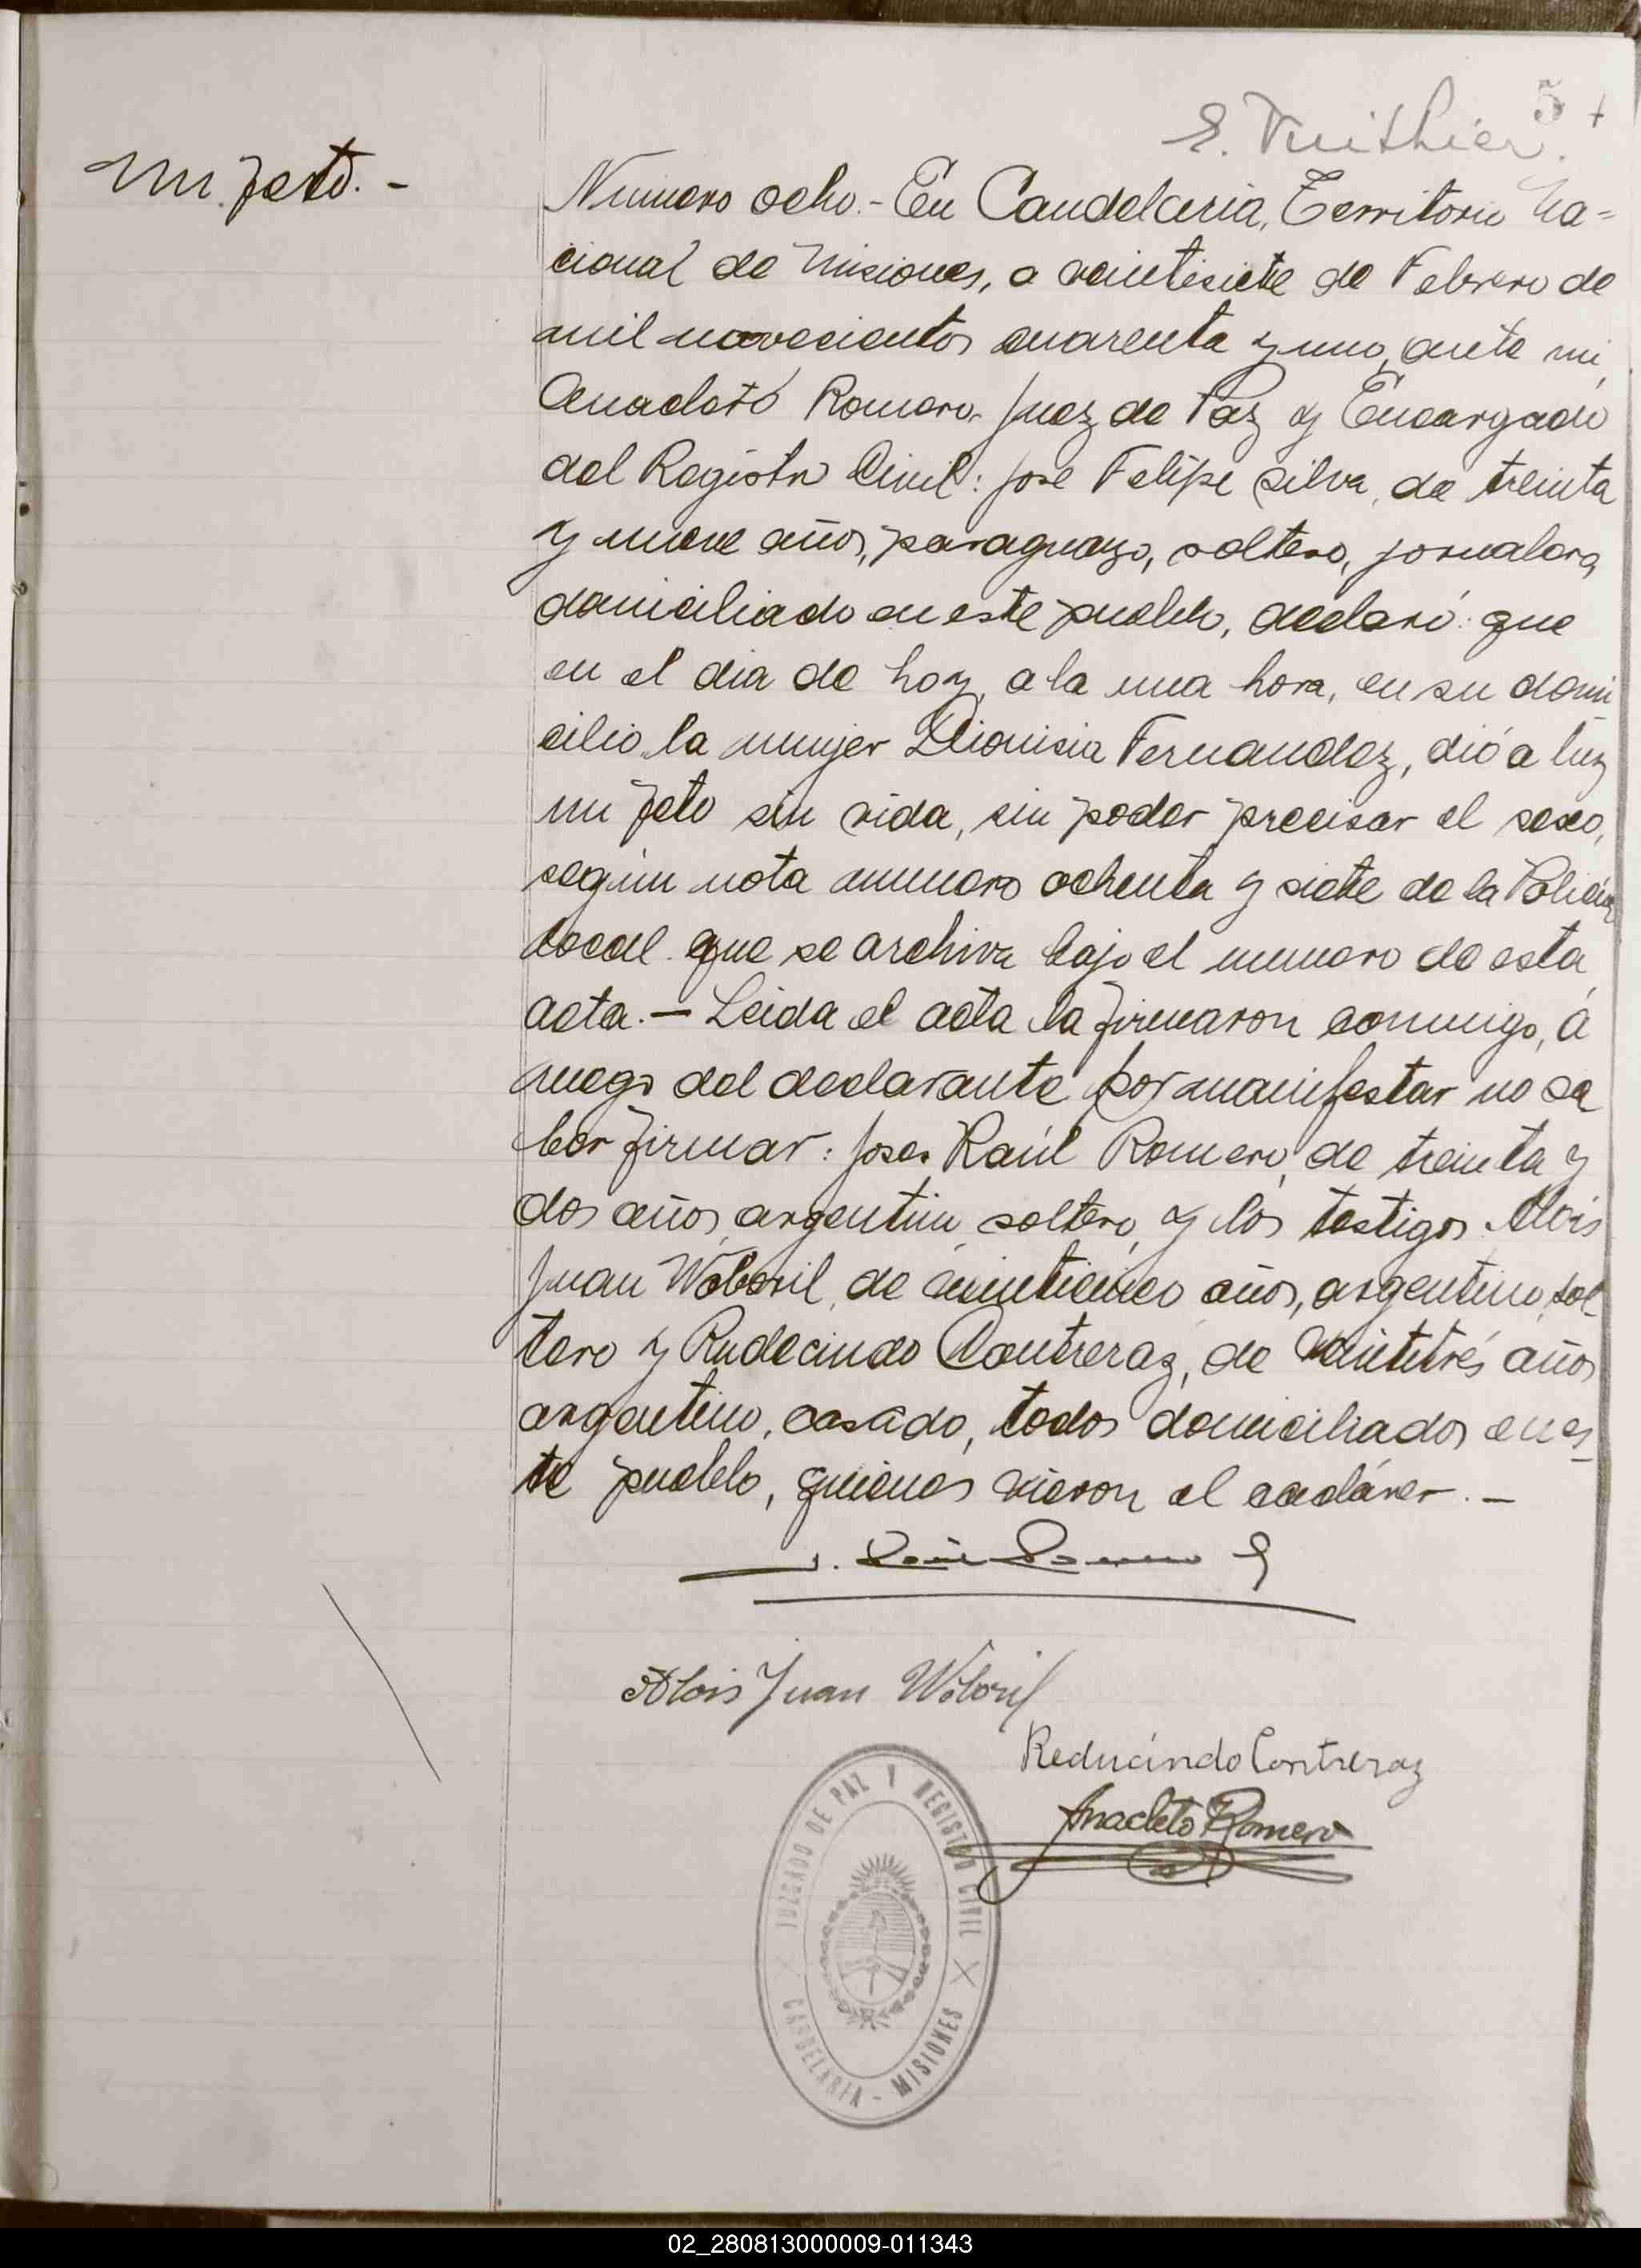 5 +
E. Vuithier.
Un feto. -
Número ocho. - En Candelaria, Territorio Na=
cional de Misiones, a veintisiete de Febrero de
mil novecientos cuarenta y uno, ante mi,
Anacleto Romero, Juez de Paz y Encargado
del Registro Civil: José Felipe Silva, de treinta
y nueve años, paraguayo, soltero, jornalero,
domiciliado en este pueblo, declaró: que
en el dia de hoy, a la una hora, en su domi
cilio, la mujer Dionisia Fernandez, dió a luz
un feto sin vida, sin poder precisar el sexo,
según nota numero ochenta y siete de la Policía
local que se archiva bajo el numero de esta
acta. — Leida el acta la firmaron conmigo, á
ruego del declarante por manifestar no sa
ber firmar: José Raúl Romero, de treinta y
dos años, argentino, soltero, y los testigos Alois
Juan Woboril, de veinticinco años, argentino, sol-
tero y Rudecindo Contreraz, de veintitrés años
argentino, casado, todos domiciliados en es
te pueblo, quienes vieron el cadáver. —
J. Raúl Romero
Alois Juan Woboril
Reducindo Contreraz
Anacleto Romero
JUZGADO DE PAZ Y REGISTRO CIVIL
CANDELARIA - MISIONES
02_280813000009-011343